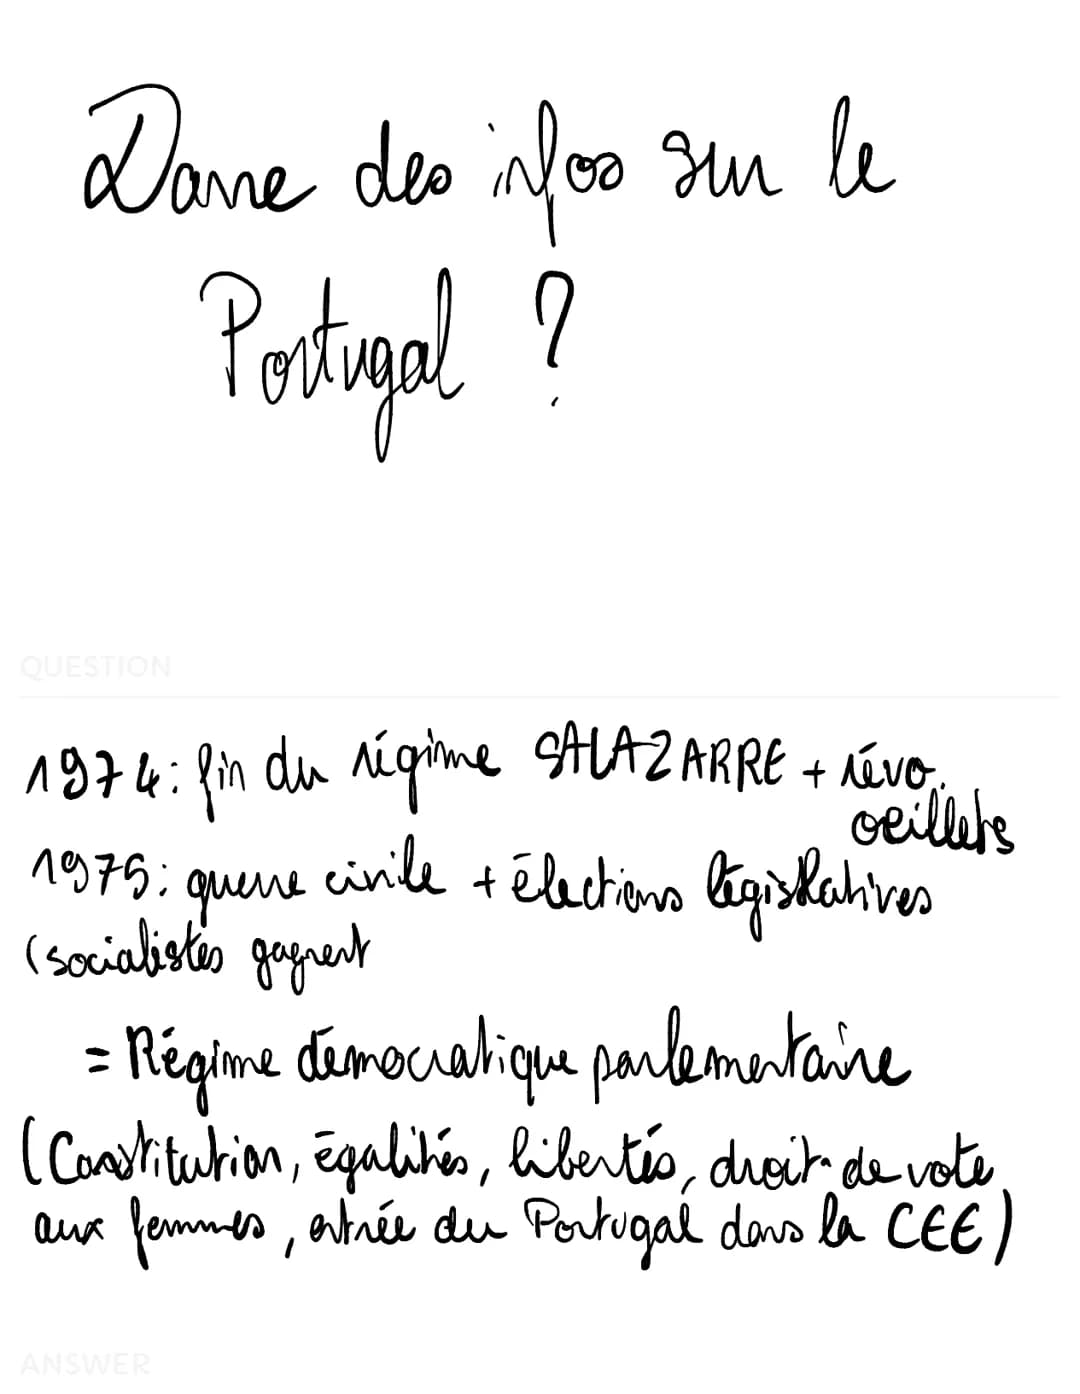 Donne des infos sur le
Portugal ?
QUESTION
1974 : fin du régime SALAZARRE + révo.
oeillets
1975 : guerre civile + élections législatives
(socialistes gagnent
= Régime démocratique parlementaire
(Constitution, égalités, libertés, droit de vote
aux femmes, entrée du Portugal dans la CEE)
ANSWER